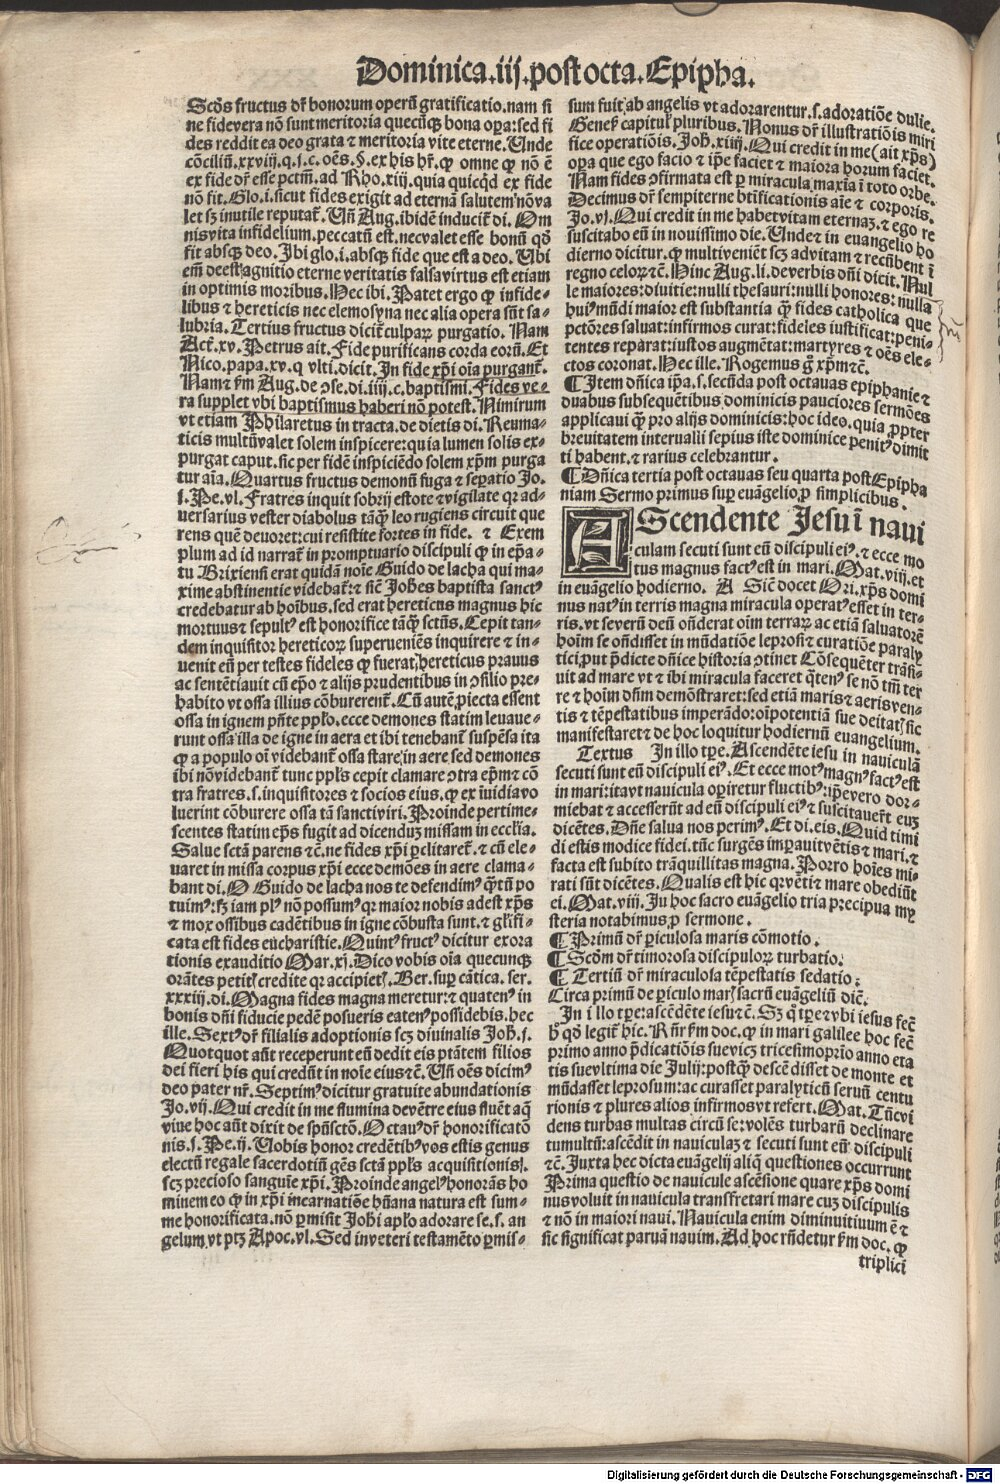 Dominica.iij.post octa.Epipha.
Scds fructus dr̄ bonorum operū gratificatio.nam si
ne fide vera nō sunt meritoria quecūqȝ bona oꝑa:sed fi
des reddit ea deo grata ⁊ meritoria vite eterne. Unde
cōciliū.xxviij.q.j.c.oēs.§.ex his hr̄.ꝙ omne qȝ nō ē
ex fide dr̄ esse pctm̄.ad Rho.xiij.quia quicqd ex fide
nō fit. Glo.i.sicut fides exigit ad eternā salutem nō va
let sȝ inutile reputat᷑. Uñ Aug.ibidē inducit᷑ di. Om
nis vita infidelium.peccatū est.nec valet esse bonū qd̄
fit absqȝ deo. Ibi glo.i.absqȝ fide que est a deo. Ubi
em̄ deest agnitio eterne veritatis falsa virtus est etiam
in optimis moribus. Hec ibi. Patet ergo ꝙ infide⸗
libus ⁊ hereticis nec elemosyna nec alia opera sūt sa⸗
lubria. Tertius fructus dicit᷑ culpaꝝ purgatio. Nam
Act.xv.Petrus ait. Fide purificans corda eorū. Et
Nico.papa.xv.q vlti.dicit. In fide xp̄i oīa purgant᷑.
Nam ⁊ fm̄ Aug.de ↄse.di.iiij.c.baptismi. Fides ve⸗
ra supplet vbi baptismus haberi nō potest. Nimirum
vt etiam Philaretus in tracta.de dietis di. Reuma⸗
ticis multū valet solem inspicere:quia lumen solis ex⸗
purgat caput.sic per fidē inspiciēdo solem xp̄m purga
tur aīa. Quartus fructus demonū fuga ⁊ seꝑatio Jo.
j. Pe.vl. Fratres inquit sobrij estote ⁊ vigilate qꝛ ad⸗
versarius vester diabolus tāqȝ leo rugiens circuit que
rens quē deuoret:cui resistite fortes in fide. ⁊ Exem
plum ad id narrat᷑ in promptuario discipuli ꝙ in epa⸗
tu Brixiensi erat quidā noīe Guido de lacha qui ma⸗
xime abstinentie videbat᷑:⁊ sic̄ Johēs baptista sanctꝰ
credebatur ab hoībus.sed erat hereticus magnus hic
mortuus ⁊ sepultꝰ est honorifice tāqȝ sctūs. Cepit tan⸗
dem inquisitor hereticoꝝ superueniēs inquirere ⁊ in⸗
uenit eū per testes fideles ꝙ fuerat hereticus prauus
ac sentētiauit cū epo ⁊ alijs prudentibus in ↄsilio pre⸗
habito vt ossa illius cōburerent᷑. Cū autē ꝓiecta essent
ossa in ignem pn̄te pplo.ecce demones statim leuaue⸗
runt ossa illa de igne in aera et ibi tenebant suspēsa ita
ꝙ a populo oī videbant᷑ ossa stare in aere sed demones
ibi nō videbant᷑ tunc pplꝰ cepit clamare ↄtra epm ⁊ cō
tra fratres.s.inquisitores ⁊ socios eius.ꝙ ex īuidia vo
luerint cōburere ossa tā sancti viri. Proinde pertime⸗
scentes statim eps fugit ad dicenduȝ missam in ecclīa.
Salue sctā parens ⁊c̄.ne fides xp̄i ꝑclitaret᷑.⁊ cū ele⸗
uaret in missa corpus xp̄i ecce demōes in aere clama⸗
bant di. O Guido de lacha nos te defendimꝰ q̄tū po
tuimꝰ:sȝ iam plꝰ nō possumꝰ qꝛ maior nobis adest xp̄s
⁊ mox ossibus cadētibus in igne cōbusta sunt.⁊ glīfi⸗
cata est fides eucharistie. Quintꝰ fructꝰ dicitur exora
tionis exauditio Mar.xj. Dico vobis oīa quecunqȝ
orātes petitis credite qꝛ accipietis. Ber.suꝑ cātica.ser.
xxxiij.di. Magna fides magna meretur:⁊ quatenꝰ in
bonis dn̄i fiducie pedē posueris eatenꝰ possidebis.hec
ille. Sextꝰ dr̄ filialis adoptionis scȝ diuinalis Joh̄.j.
Quotquot aūt receperunt eū dedit eis ptātem filios
dei fieri his qui credūt in noīe eius ⁊c̄. Uñ oēs dicimꝰ
deo pater nr̄. Septimꝰ dicitur gratuite abundationis
Jo.vij. Qui credit in me flumina de vētre eius fluēt aq̄
viue hoc aūt dixit de spūsctō. Octauꝰ dr̄ honorificatō
nis.j.Pe.ij. Uobis honoꝛ credētibꝰ vos estis genus
electū regale sacerdotiū gēs sctā pplꝰ acquisitionis.
scȝ precioso sanguīe xp̄i. Proinde angelꝰ honorās ho
minem eo ꝙ in xp̄i incarnatiōe hūana natura est sum⸗
me honorificata.nō ꝑmisit Joh̄i aplo adorare se.s.an
gelum vt ptȝ Apoc.vl. Sed in veteri testamēto ꝑmis⸗
sum fuit ab angelis vt adorarentur.s.adoratiōe dulie.
Genes̄ capitul̄ pluribus. Nonus dr̄ illustratiōis miri
fice operatiōis. Joh̄.xiiij. Qui credit in me (ait xp̄s)
oꝑa que ego facio ⁊ ip̄e faciet ⁊ maiora horum faciet.
Nam fides ↄfirmata est ꝑ miracula maxīa ī toto orbe.
Decimus dr̄ sempiterne btīficationis aīe ⁊ corporis.
Jo.vj. Qui credit in me habet vitam eternaȝ.⁊ ego re
suscitabo eū in nouissimo die. Unde ⁊ in euangelio ho
dierno dicitur.ꝙ multi venient scȝ ad vitam ⁊ recūbent ī
regno celoꝝ ⁊c̄. Hinc Aug.li.de verbis dn̄i dicit. Nul
le maiores:diuitie:nulli thesauri:nulli honores:nulla
huiꝰ mūdi maior est substantia qȝ fides catholica que
pctōres saluat:infirmos curat:fideles iustificat:peni⸗
tentes reparat:iustos augmētat:martyres ⁊ oēs ele⸗
ctos coronat. Hec ille. Rogemus g̊ xp̄m ⁊c̄.
¶ Item dn̄ica ip̄a.s.secūda post octauas epiphanie ⁊
duabus subsequētibus dominicis pauciores sermōes
applicaui qȝ pro alijs dominicis:hoc ideo.quia ꝓpter
breuitatem interualli sepius iste dominice penitꝰ dimit
ti habent.⁊ rarius celebrantur.
¶ Dn̄ica tertia post octauas seu quarta post Epipha
niam Sermo primus suꝑ euāgelio.ꝓ simplicibus.
AScendente Jesu ī naui
culam secuti sunt eū discipuli eiꝰ.⁊ ecce mo
tus magnus factꝰ est in mari. Mat.viij.et
in euāgelio hodierno. A Sic̄ docet Ori.xp̄s domi
nus natꝰ in terris magna miracula operatꝰ esset in ter⸗
ris.vt se verū deū oñderat oīm terraꝝ ac etiā saluatorē
hoīm se oñdisset in mūdatiōe leprosi ⁊ curatiōe paraly
tici.put p̄dicte dn̄ice historia ↄtinet Cōsequēter trāsi⸗
uit ad mare vt ⁊ ibi miracula faceret q̄tenꝰ se nō tm̄ ter
re ⁊ hoīm dn̄m demōstraret:sed etiā maris ⁊ aeris ven⸗
tis ⁊ tēpestatibus imperādo:oīpotentiā sue deitatꝭ sic
manifestaret ⁊ de hoc loquitur hodiernū euangelium.
Textus In illo tꝑe. Ascendēte iesu in nauiculā
secuti sunt eū discipuli eiꝰ. Et ecce motꝰ magnꝰ factꝰ est
in mari:ita vt nauicula oꝑiretur fluctibꝰ:ip̄e vero dor⸗
miebat ⁊ accesserūt ad eū discipuli eiꝰ ⁊ suscitauert̄ euȝ
dicētes. Dn̄e salua nos perimꝰ. Et di.eis. Quid timi
di estis modice fidei.tūc surgēs imꝑauit vētis ⁊ mari.⁊
facta est subito trāquillitas magna. Porro hoīes mi⸗
rati sūt dicētes. Qualis est hic qꝛ vēti ⁊ mare obediūt
ei. Mat.viij. In hoc sacro euāgelio tria precipua my
steria notabimus ꝓ sermone.
¶ Primū dr̄ ꝑiculosa maris cōmotio.
¶ Scdm̄ dr̄ timorosa discipuloꝝ turbatio.
¶ Tertiū dr̄ miraculosa tēpestatis sedatio:
Circa primū de ꝑiculo marꝭ sacrū euāgeliū dicē.
In illo tꝑe:ascēdēte iesu ⁊c̄. Sȝ q̄ tꝑe ⁊ vbi iesus fec̄
h̄ qd̄ legit᷑ hic. Rn̄r fm̄ doc.ꝙ in mari galilee hoc fec̄
primo anno p̄dicatiōis sue vicȝ tricesimoprīo anno eta
tis sue vltima die Julij:postqȝ descēdisset de monte et
mūdasset leprosum:ac curasset paralyticū seruū centu
rionis ⁊ plures alios infirmos vt refert. Mat. Tūc vi
dens turbas multas circū se:volēs turbarū declinare
tumultū:ascēdit in nauiculaȝ ⁊ secuti sunt eū discipuli
⁊c̄. Juxta hec dicta euāgelij aliq̄ questiones occurrunt
Prima questio de nauicule ascēsione quare xp̄s domi
nus voluit in nauicula transfretari mare cuȝ discipulis
⁊ nō in maiori naui. Nauicula enim diminutiuum ē ⁊
sic significat paruā nauim. Ad hoc rn̄detur fm̄ doc. ꝙ
triplici
Digitalisierung gefördert durch die Deutsche Forschungsgemeinschaft - DFG